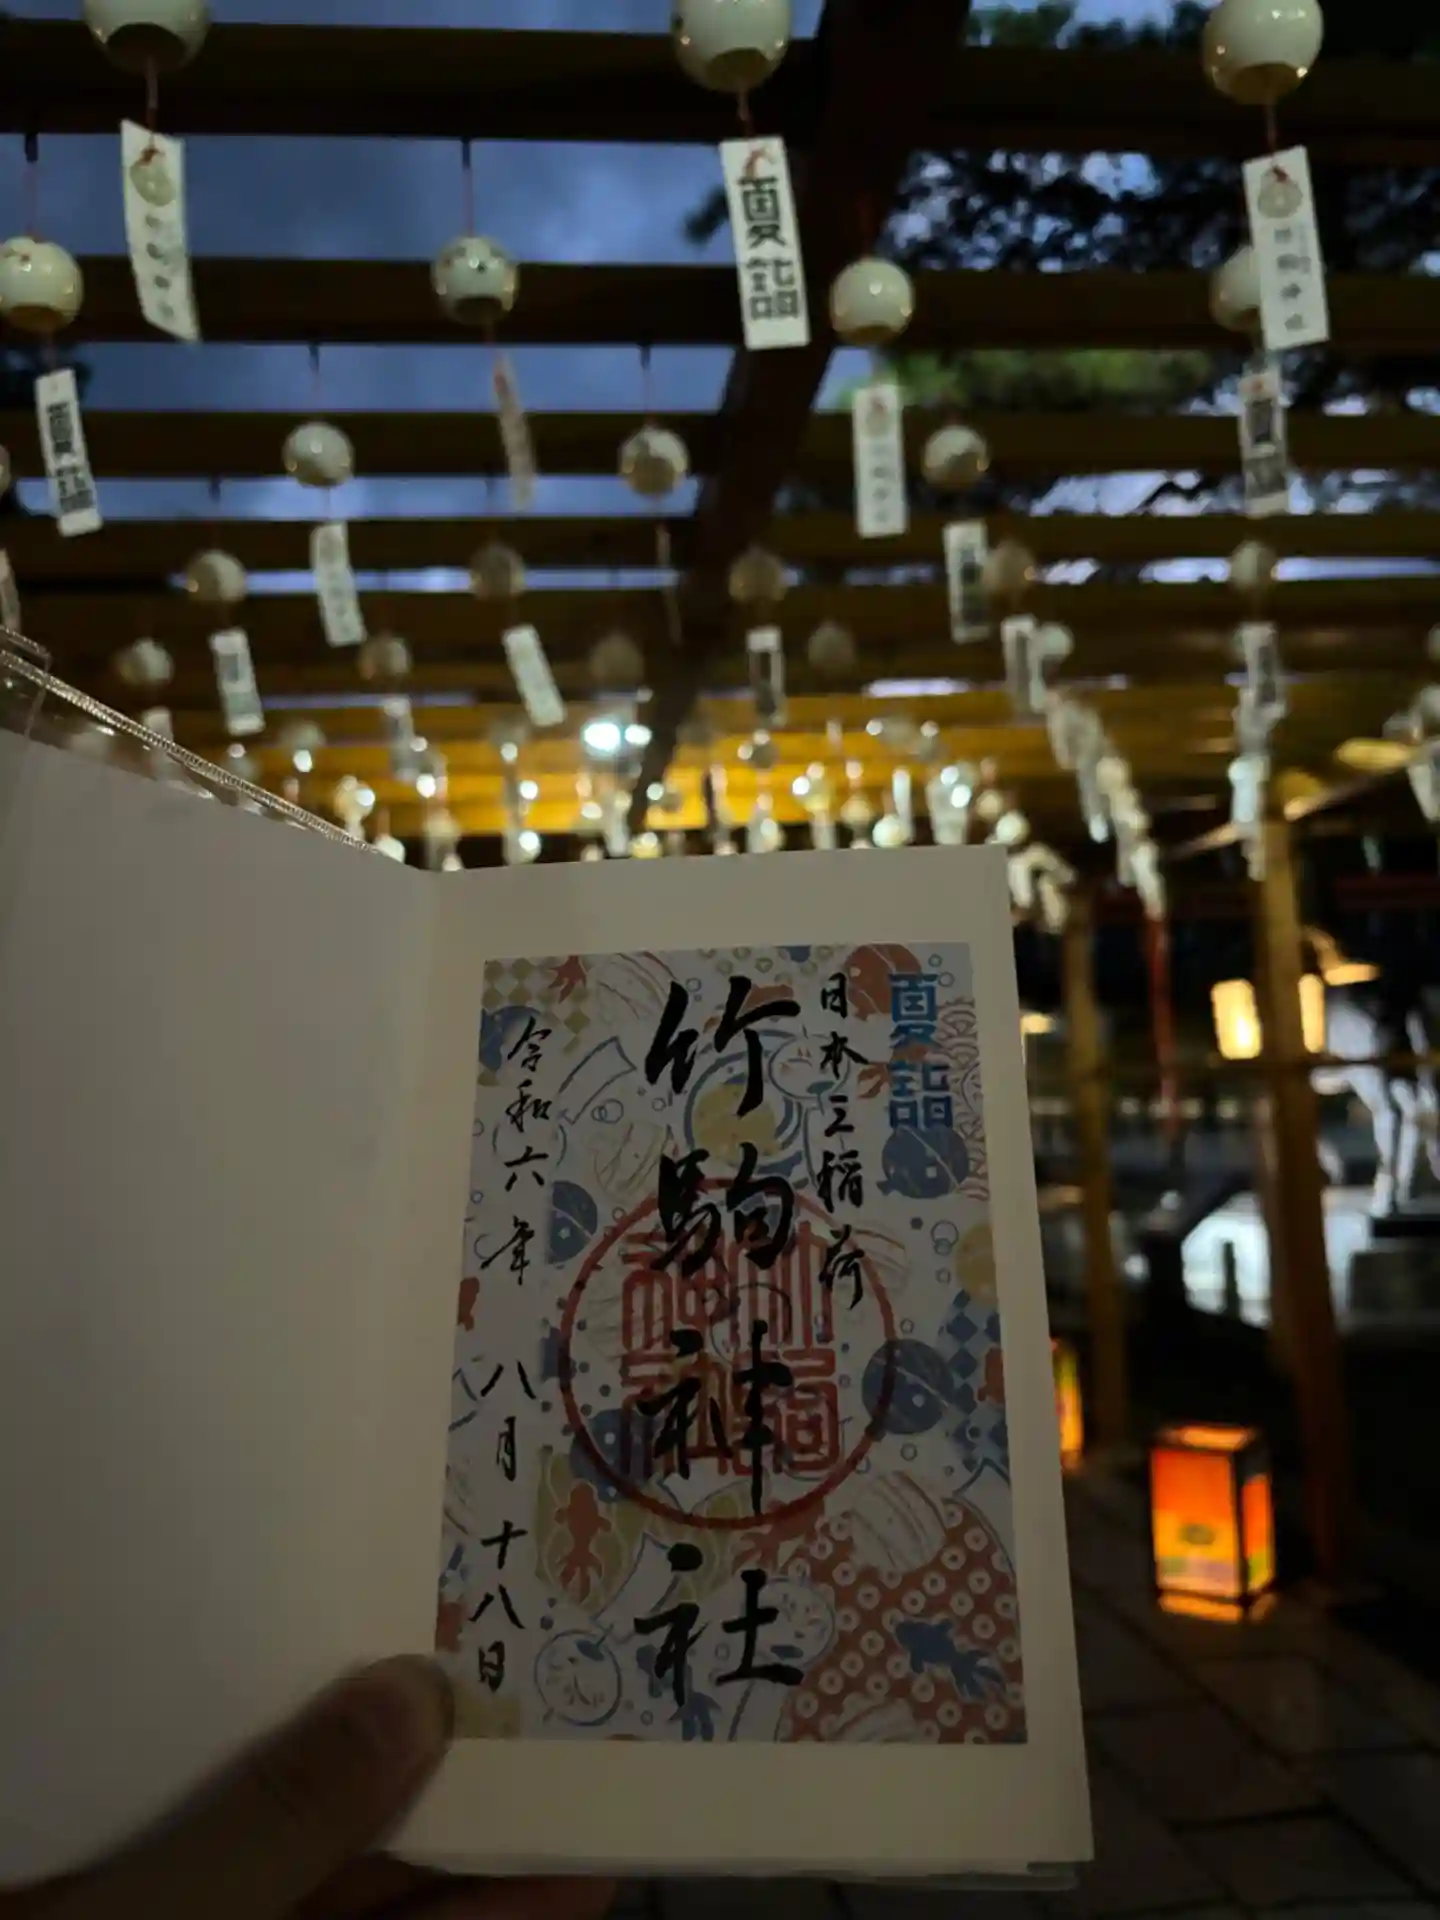 夏詣
夏詣
夏詣
日本三稲荷
竹駒神社
令和六年 八月 十八日